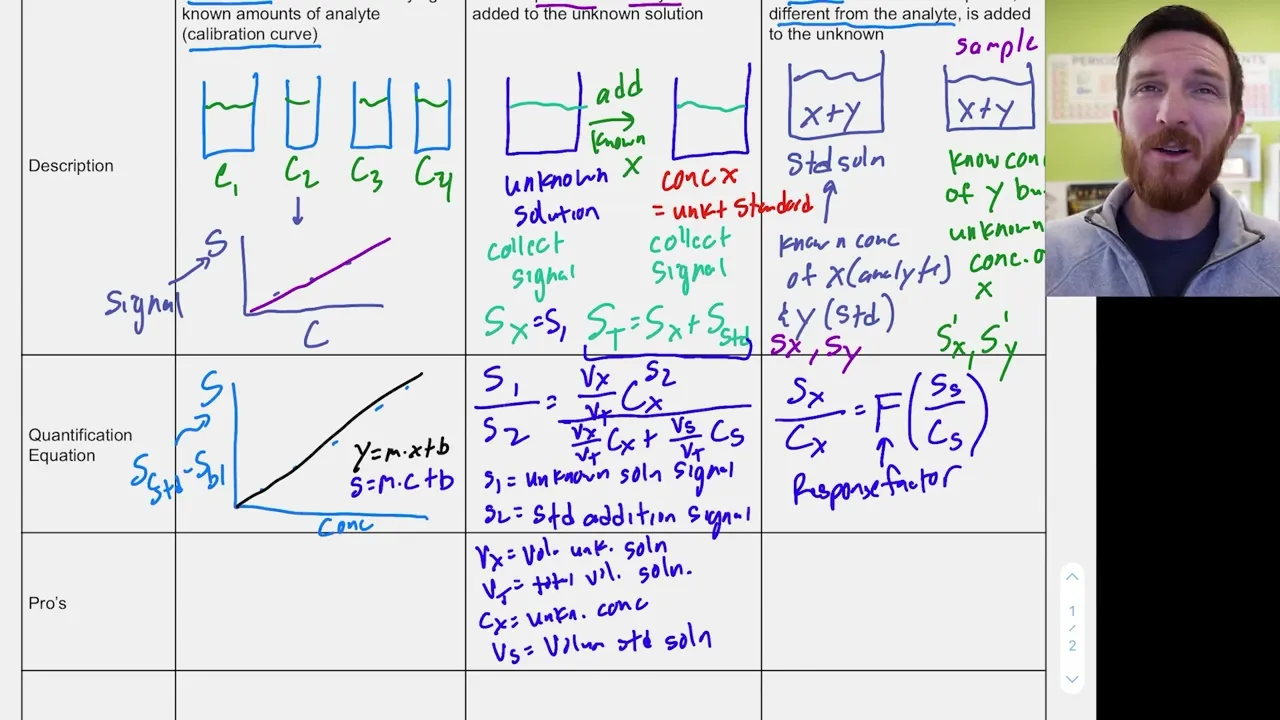 known amounts of analyte
(calibration curve)
added to the unknown solution
different from the analyte, is added
to the unknown
Description
C1
C2
C3
C4
S
signal
C
add
known
X
unknown
solution
collect
signal
Sx=S1
conc x
= unk+ Standard
collect
signal
ST=Sx+Sstd
x+y
Std soln
known conc
of x(analyte)
& y (std)
Sx, Sy
sample
x+y
know con
of y bu
unknown
conc. o
x
S'x, S'y
PERIODIC
Quantification
Equation
S
Sstd-Sbl
y=m·x+b
S=m·c+b
conc
S1/S2 = Vx/VT Cx / Vx/VT Cx + Vs/VT Cs
S2
S1= unknown soln signal
S2= Std addition signal
Sx/Cx = F(Ss/Cs)
Response factor
Pro's
Vx= Vol. unk. soln
VT= totl vol. soln.
Cx= unkn. conc
Vs= Volum std soln
1
/
2